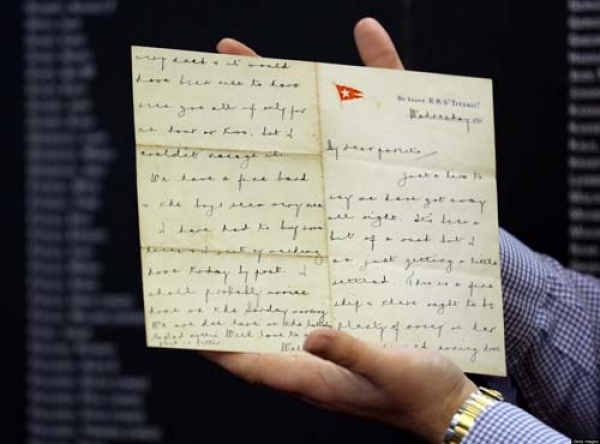 very much & it would
have been nice to have
seen you all if only for
an hour or two, but I
couldn't manage it.
We have a fine band
& the boys seem very nice
I have had to buy some
linen & I sent my washing
home today by post. I
shall probably arrive
home on the Sunday morning
We are due here on the
is better
On board R.M.S. "TITANIC"
Wednesday
My dear parents,
Just a line to
say we have got away
all right. It's been a
bit of a rush but I
am just getting a little
settled. This is a fine
ship & there ought to be
plenty of money on her
missed coming home
Getty Images